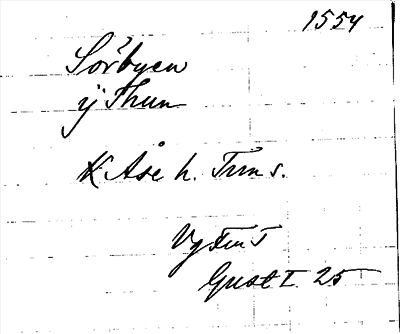 1554
Sörbyen
ÿ Thun
K Åse h. Tun s.
Vg
Gust I 25